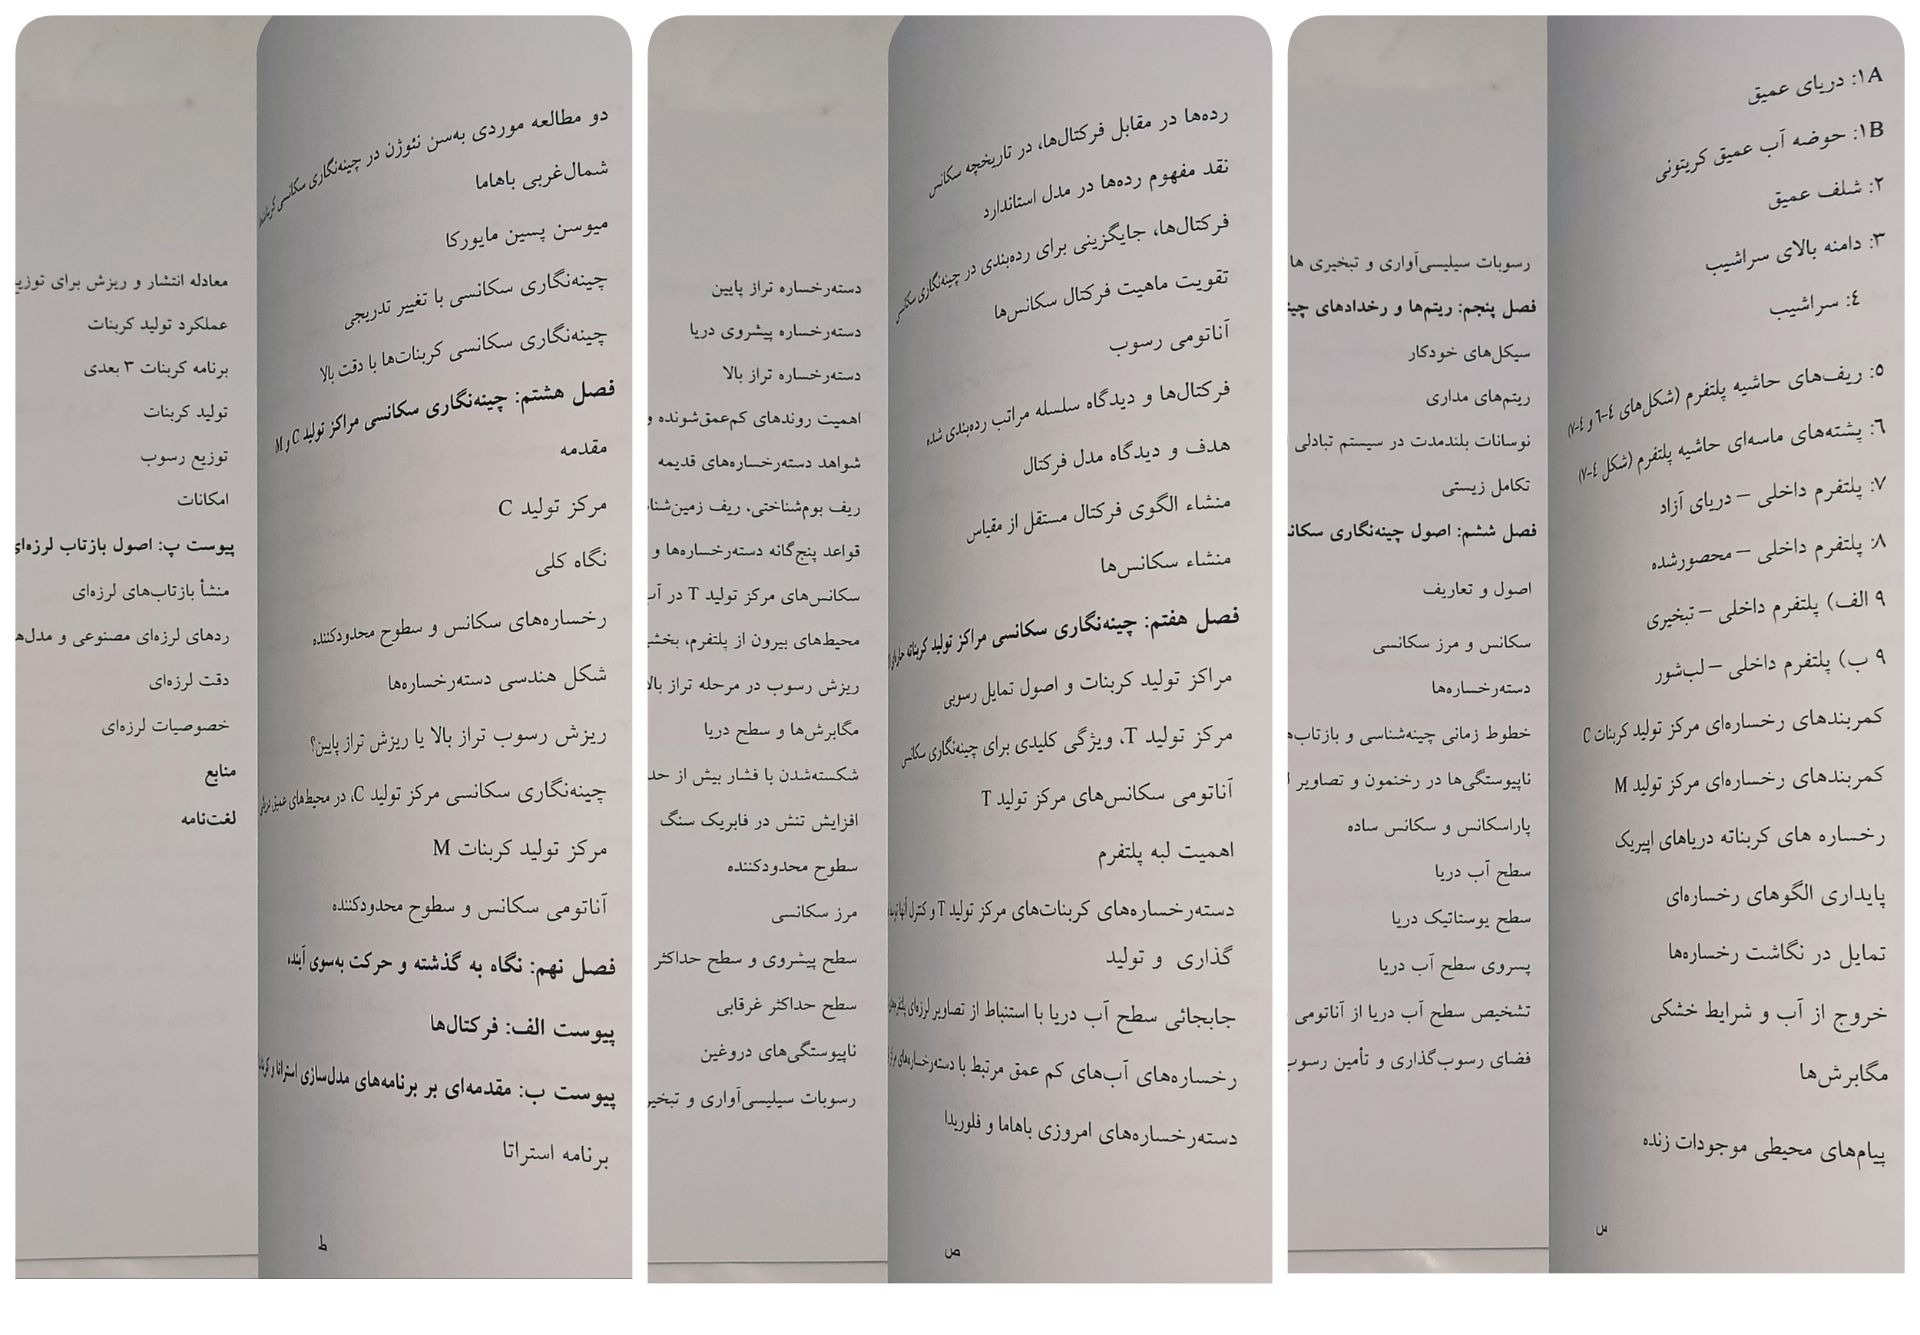 ۱A: دریای عمیق
۱B: حوضه آب عمیق کریتونی
۲: شلف عمیق
۳: دامنه بالای سراشیب
٤: سراشیب
٥: ریف‌های حاشیه پلتفرم (شکل‌های ٤-٦ و ٤-۷)
٦: پشته‌های ماسه‌ای حاشیه پلتفرم (شکل ٤-۷)
۷: پلتفرم داخلی – دریای آزاد
۸: پلتفرم داخلی – محصورشده
۹ الف) پلتفرم داخلی – تبخیری
۹ ب) پلتفرم داخلی – لب‌شور
کمربندهای رخساره‌ای مرکز تولید کربنات C
کمربندهای رخساره‌ای مرکز تولید M
رخساره های کربناته دریاهای اپیریک
پایداری الگوهای رخساره‌ای
تمایل در نگاشت رخساره‌ها
خروج از آب و شرایط خشکی
مگابرش‌ها
پیام‌های محیطی موجودات زنده
س
رسوبات سیلیسی‌آواری و تبخیری ها
فصل پنجم: ریتم‌ها و رخدادهای
سیکل‌های خودکار
ریتم‌های مداری
نوسانات بلندمدت در سیستم تبادلی
تکامل زیستی
فصل ششم: اصول چینه‌نگاری
اصول و تعاریف
سکانس و مرز سکانسی
دسته‌رخساره‌ها
خطوط زمانی چینه‌شناسی و
ناپیوستگی‌ها در رخنمون و تصاویر
پاراسکانس و سکانس ساده
سطح آب دریا
سطح یوستاتیک دریا
پسروی سطح آب دریا
تشخیص سطح آب دریا از آناتومی
فضای رسوب‌گذاری و تأمین رسوب
رده‌ها در مقابل فرکتال‌ها، در تاریخچه سکانس
نقد مفهوم رده‌ها در مدل استاندارد
فرکتال‌ها، جایگزینی برای رده‌بندی در چینه‌نگاری سکانسی
تقویت ماهیت فرکتال سکانس‌ها
آناتومی رسوب
فرکتال‌ها و دیدگاه سلسله مراتب رده‌بندی شده
هدف و دیدگاه مدل فرکتال
منشاء الگوی فرکتال مستقل از مقیاس
منشاء سکانس‌ها
فصل هفتم: چینه‌نگاری سکانسی مراکز تولید کربناته
مراکز تولید کربنات و اصول تمایل رسوبی
مرکز تولید T، ویژگی کلیدی برای چینه‌نگاری سکانسی
آناتومی سکانس‌های مرکز تولید T
اهمیت لبه پلتفرم
دسته‌رخساره‌های کربنات‌های مرکز تولید T و کنترل آنها
گذاری و تولید
جابجائی سطح آب دریا با استنباط از تصاویر لرزه‌ای
رخساره‌های آب‌های کم عمق مرتبط با دسته‌رخساره‌های
دسته‌رخساره‌های امروزی باهاما و فلوریدا
ص
دسته‌رخساره تراز پایین
دسته‌رخساره پیشروی دریا
دسته‌رخساره تراز بالا
اهمیت روندهای کم‌عمق‌شونده و
شواهد دسته‌رخساره‌های قدیمه
ریف بوم‌شناختی، ریف
قواعد پنج‌گانه دسته‌رخساره‌ها و
سکانس‌های مرکز تولید T در
محیط‌های بیرون از پلتفرم،
ریزش رسوب در مرحله تراز بالا
مگابرش‌ها و سطح دریا
شکسته‌شدن با فشار بیش از حد
افزایش تنش در فابریک سنگ
سطوح محدودکننده
مرز سکانسی
سطح پیشروی و سطح حداکثر
سطح حداکثر غرقابی
ناپیوستگی‌های دروغین
رسوبات سیلیسی‌آواری و
دو مطالعه موردی به‌سن نئوژن در چینه‌نگاری سکانسی
شمال‌غربی باهاما
میوسن پسین مایورکا
چینه‌نگاری سکانسی با تغییر تدریجی
چینه‌نگاری سکانسی کربنات‌ها با دقت بالا
فصل هشتم: چینه‌نگاری سکانسی مراکز تولید C و M
مقدمه
مرکز تولید C
نگاه کلی
رخساره‌های سکانس و سطوح محدودکننده
شکل هندسی دسته‌رخساره‌ها
ریزش رسوب تراز بالا یا ریزش تراز پایین؟
چینه‌نگاری سکانسی مرکز تولید C، در محیط‌های عمیق
مرکز تولید کربنات M
آناتومی سکانس و سطوح محدودکننده
فصل نهم: نگاه به گذشته و حرکت به‌سوی آینده
پیوست الف: فرکتال‌ها
پیوست ب: مقدمه‌ای بر برنامه‌های مدل‌سازی استراتا و
برنامه استراتا
ط
معادله انتشار و ریزش برای
عملکرد تولید کربنات
برنامه کربنات ۳ بعدی
تولید کربنات
توزیع رسوب
امکانات
پیوست پ: اصول بازتاب لرزه‌ای
منشأ بازتاب‌های لرزه‌ای
ردهای لرزه‌ای مصنوعی و
دقت لرزه‌ای
خصوصیات لرزه‌ای
منابع
لغت‌نامه